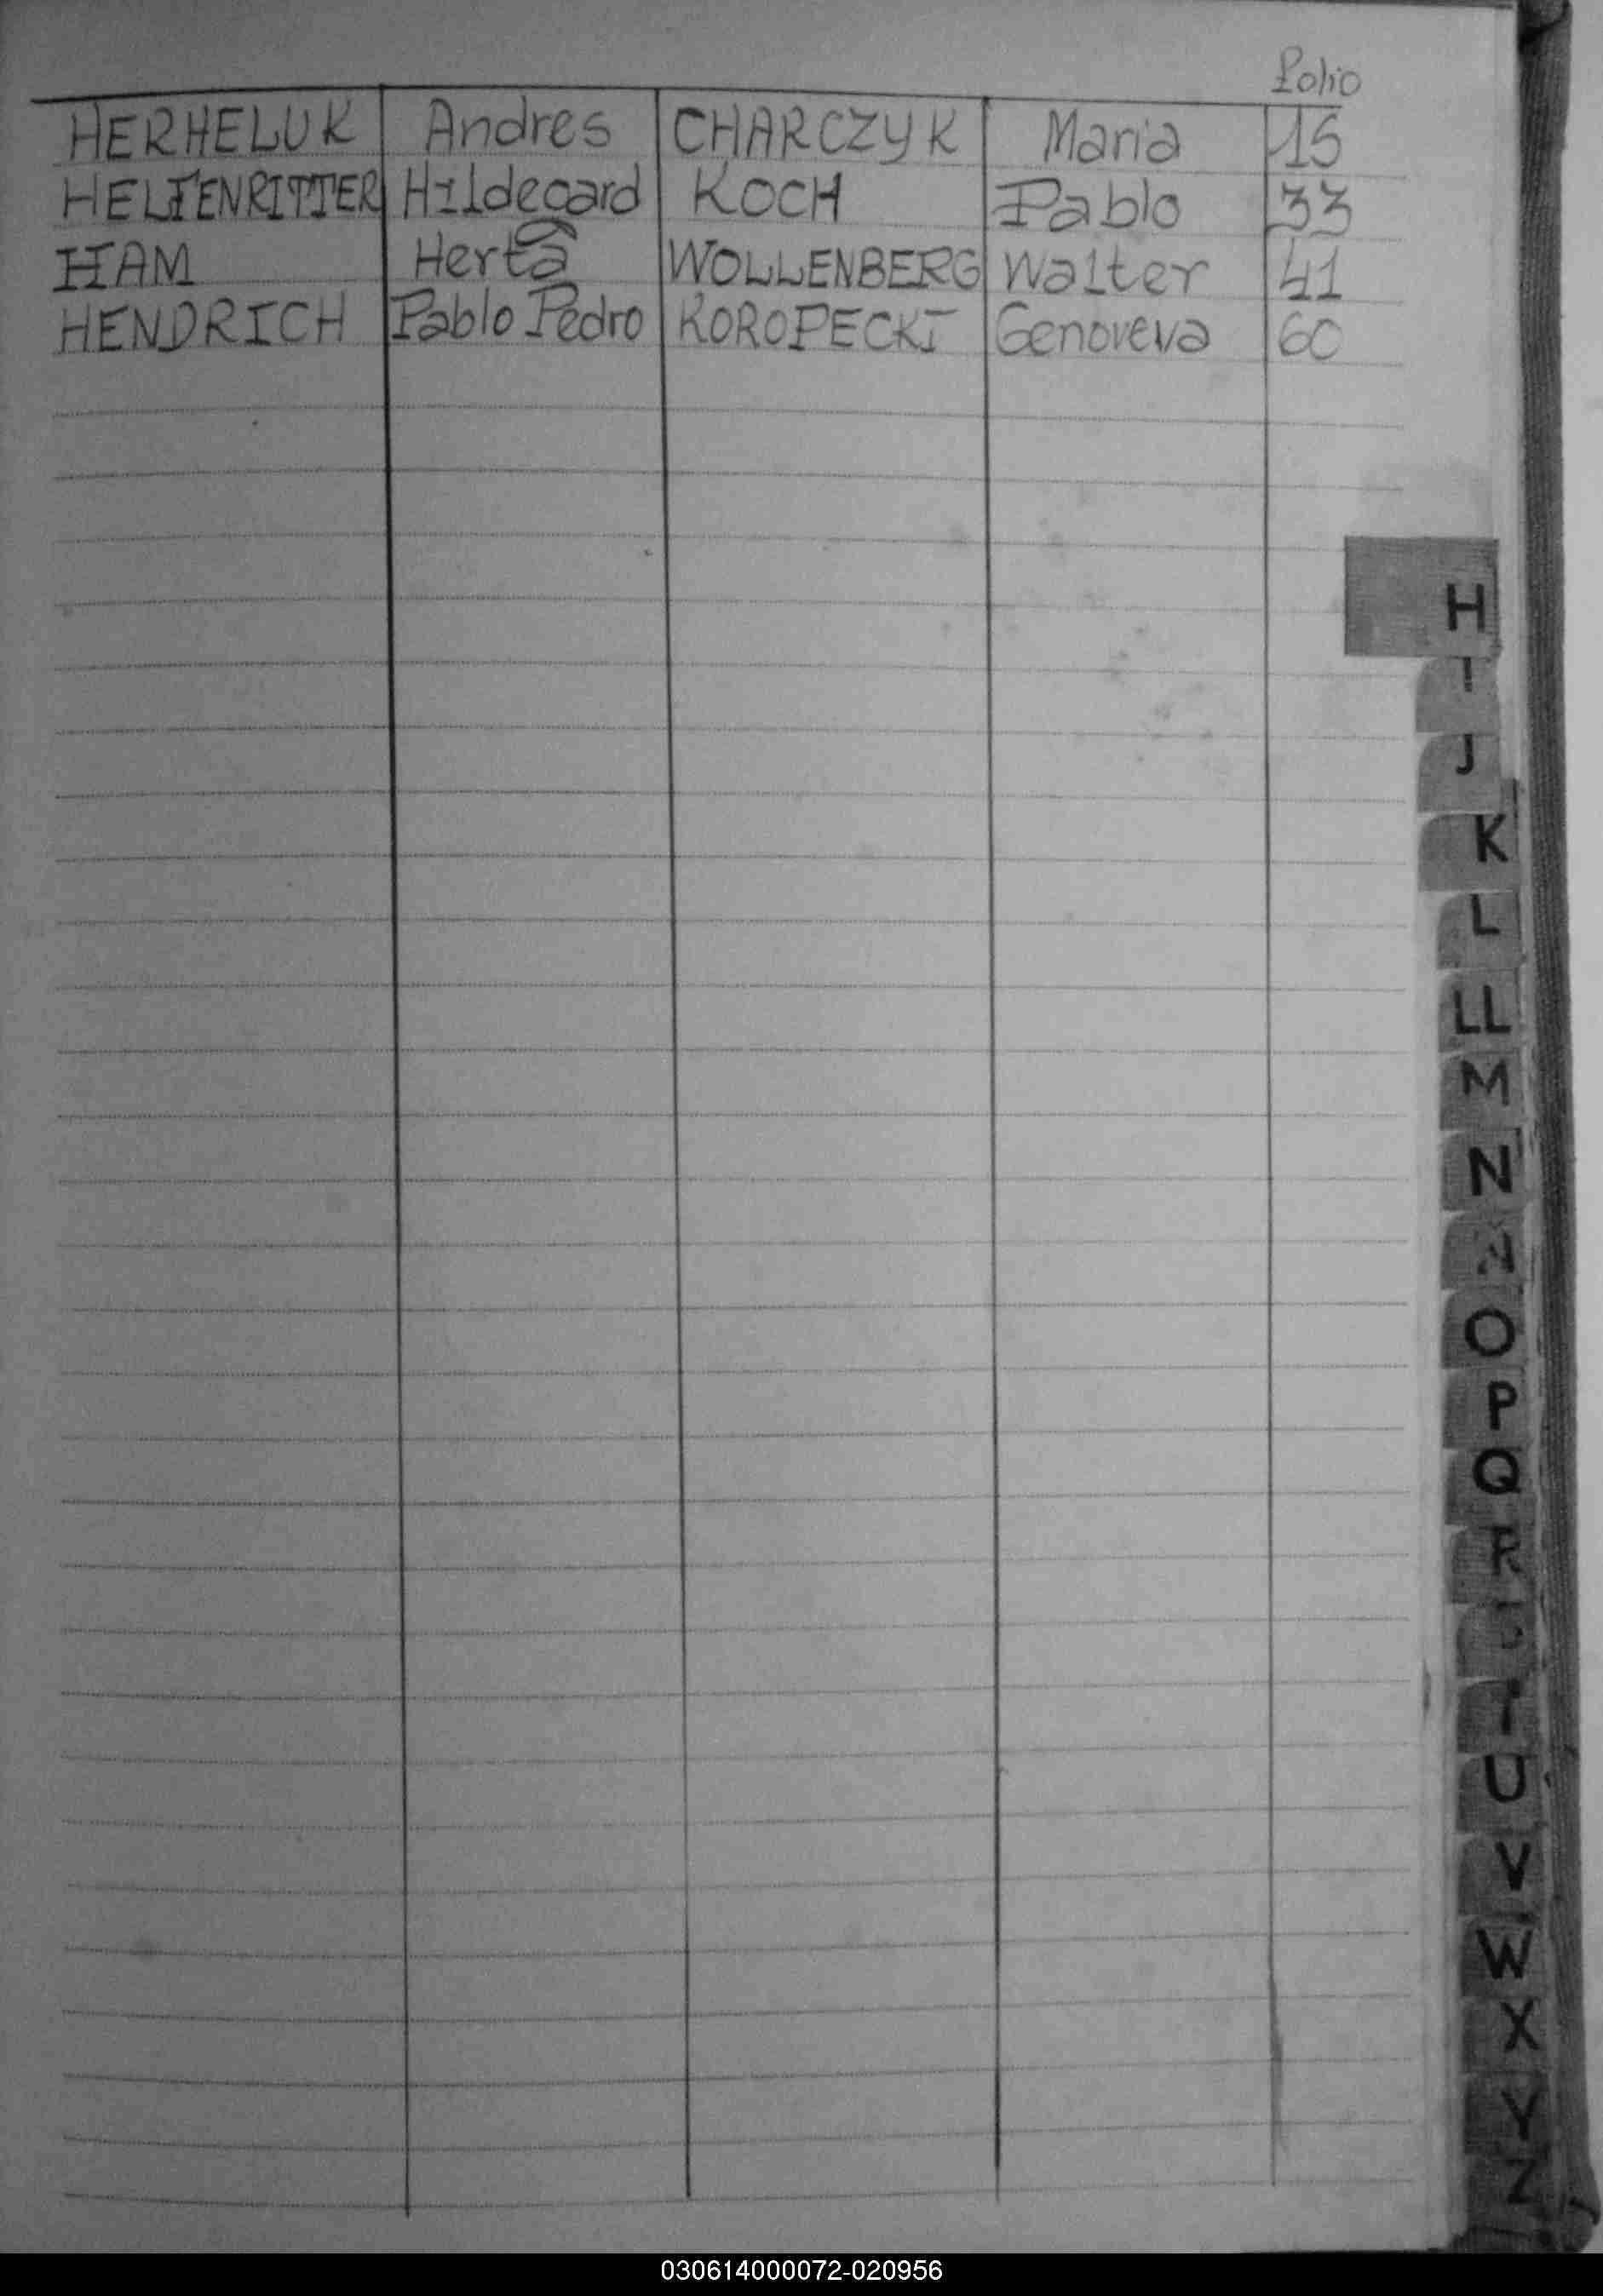 Folio
HERHELUK Andres CHARCZYK Maria 15
HELTENRITTER Hildegard KOCH Pablo 33
HAM Herta WOLLENBERG Walter 41
HENDRICH Pablo Pedro KOROPECKI Genoveva 60
H
I
J
K
L
LL
M
N
O
P
Q
R
T
U
V
W
X
Y
Z
030614000072-020956